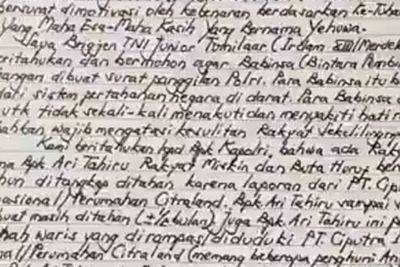 bersurat dimotivasi oleh kebenaran berdasarkan Ke-Tuha
Yang Maha Esa-Maha Kasih Yang Bernama Yehuwa.
Saya Brigjen TNI Junior Tumilaar (Irdam XIII/Merdek
beritahukan dan bermohon agar Babinsa (Bintara Pembin
angan dibuat surat panggilan Polri. Para Babinsa itu b
dati sistem pertahanan negara di darat. Para Babinsa
utk tidak sekali-kali menakuti dan menyakiti hati r
ahkan wajib mengatasi kesulitan Rakyat Sekelilingny
Kami beritahukan kpd Bpk Kapolri, bahwa ada Rak
na Bpk Ari Tahiru Rakyat Miskin dan Buta Huruf ber
hun ditangkap ditahan karena laporan dari PT. Ci
nasional/Perumahan Citraland. Bpk Ari Tahiru sampai
uat masih ditahan (± ½ bulan) Juga Bpk. Ari Tahiru ini p
hah waris yang dirampas/diduduki PT. Ciputra
nal/Perumahan Citraland (memang beberapa penghuni An